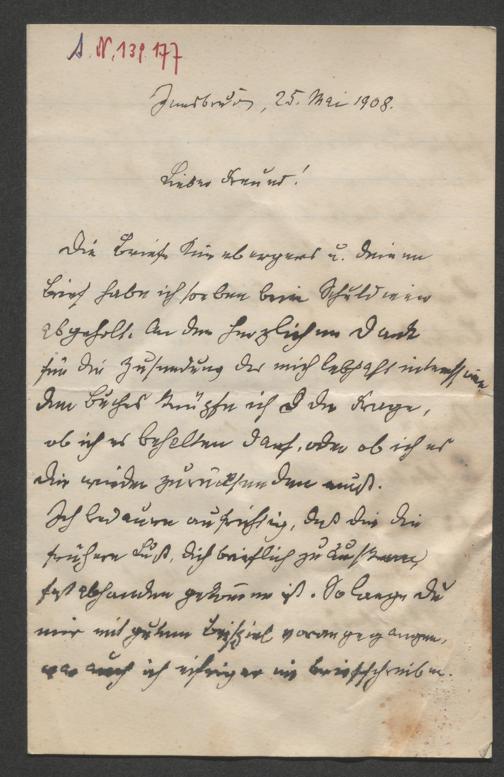 A. N. 139.177
Innsbruck, 25. Mai 1908.
Lieber Freund!
Die Briefe Kienebergers u. deinen
Brief habe ich soeben beim Schuldiener
abgeholt. An den herzlichen Dank
für die Zusendung des mich lebhaft interessieren
den Buches knüpfe ich die Frage,
ob ich es behalten darf, oder ob ich es
dir wieder zurücksenden muß.
Ich bedaure aufrichtig, daß dir die
frühere Lust, dich brieflich zu äußern,
fast abhanden gekommen ist. So lange du
mir mit gutem Beispiel vorangegangen,
war auch ich eifriger im Briefschreiben.